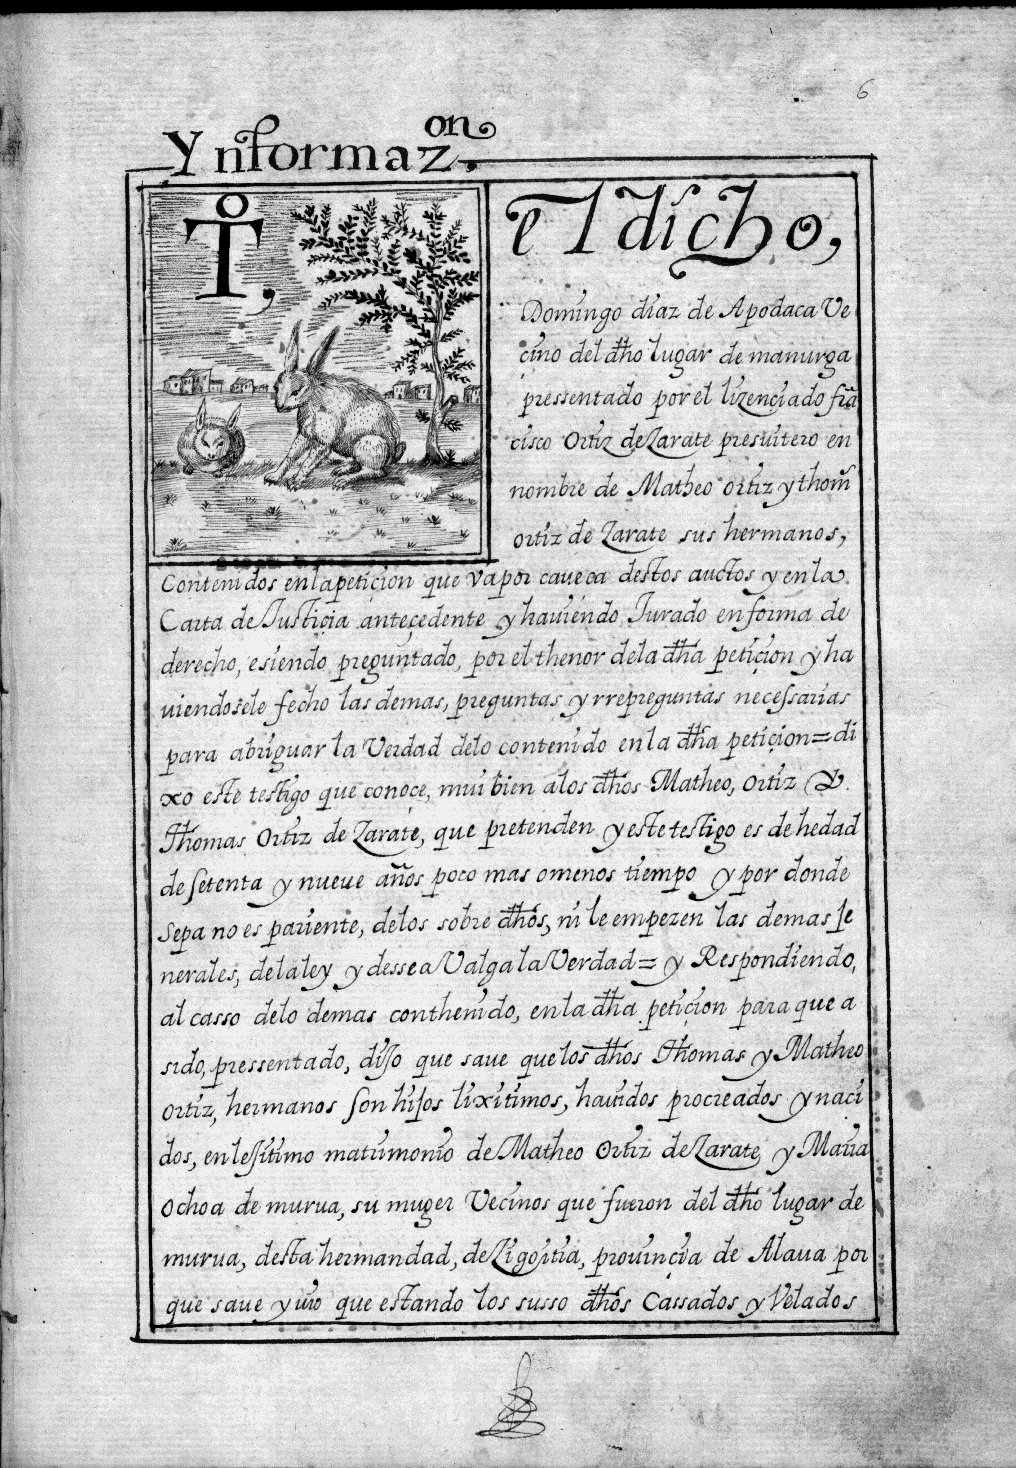 6
Ynformaz.on
To,
el dicho,
Domingo diaz de Apodaca Ve
çino del dho lugar de manurga
pressentado por el lizençiado fra
cisco Ortiz de Zarate presuitero en
nombre de Matheo ortiz y thoms
ortiz de Zarate sus hermanos,
Contenidos en la petiçion que va por caveça destos auctos y en la
Carta de Justiçia antecedente y haviendo Jurado en forma de
derecho, e siendo preguntado, por el thenor de la dha petiçion y ha
uiendosele fecho las demas, preguntas y rrepreguntas necessarias
para abriguar la Verdad de lo contenido en la dha petiçion= di
xo este testigo que conoçe, mui bien a los dhos Matheo, ortiz Y
Thomas Ortiz de Zarate, que pretenden y este testigo es de hedad
de setenta y nueue años poco mas o menos tiempo y por donde
sepa no es pariente, de los sobre dhos, ni le empezen las demas Je
nerales, de la ley y dessea Valga la Verdad= y Respondiendo,
al casso de lo demas conthenido, en la dha petiçion para que a
sido, pressentado, dijo que saue que los dhos Thomas y Matheo
ortiz, hermanos son hijos lixitimos, hauidos procreados y naçi
dos, en lejitimo matrimonio de Matheo Ortiz de Zarate y Maria
ochoa de murua, su muger Veçinos que fueron del dho lugar de
murua, desta hermandad, de Zigoitia, prouinçia de Alaua por
que saue y uio que estando los susso dhos Cassados y Velados